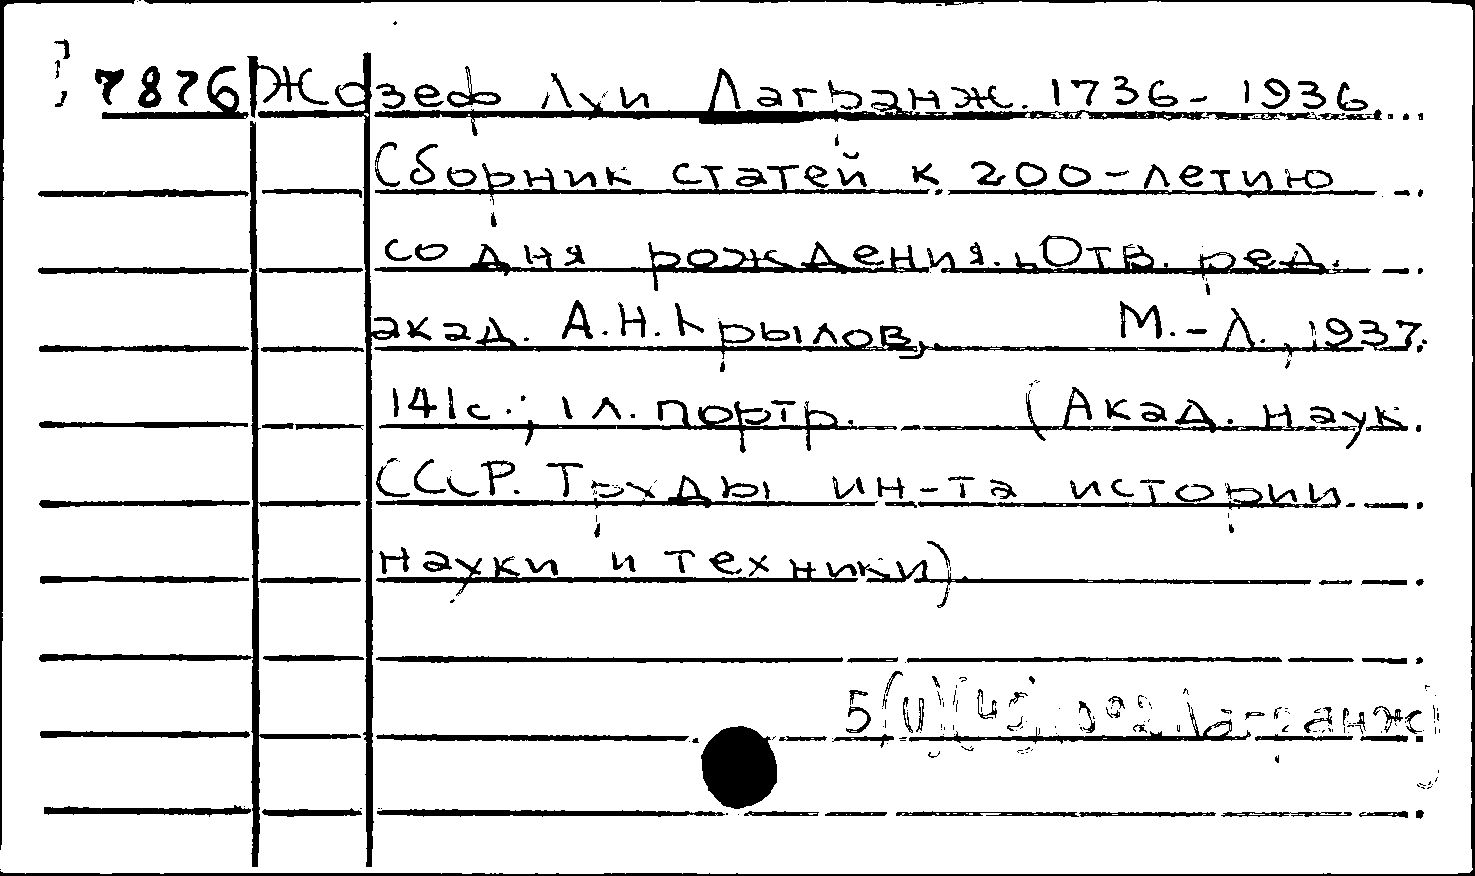 7876 Жозеф Луи Лагранж. 1736-1936.
Сборник статей к 200-летию
со дня рождения. Отв. ред.
акад. А.Н.Крылов, М.-Л., 1937.
141с.; 1 л. портр. (Акад. наук
СССР. Труды ин-та истории
науки и техники)
Лагранж)